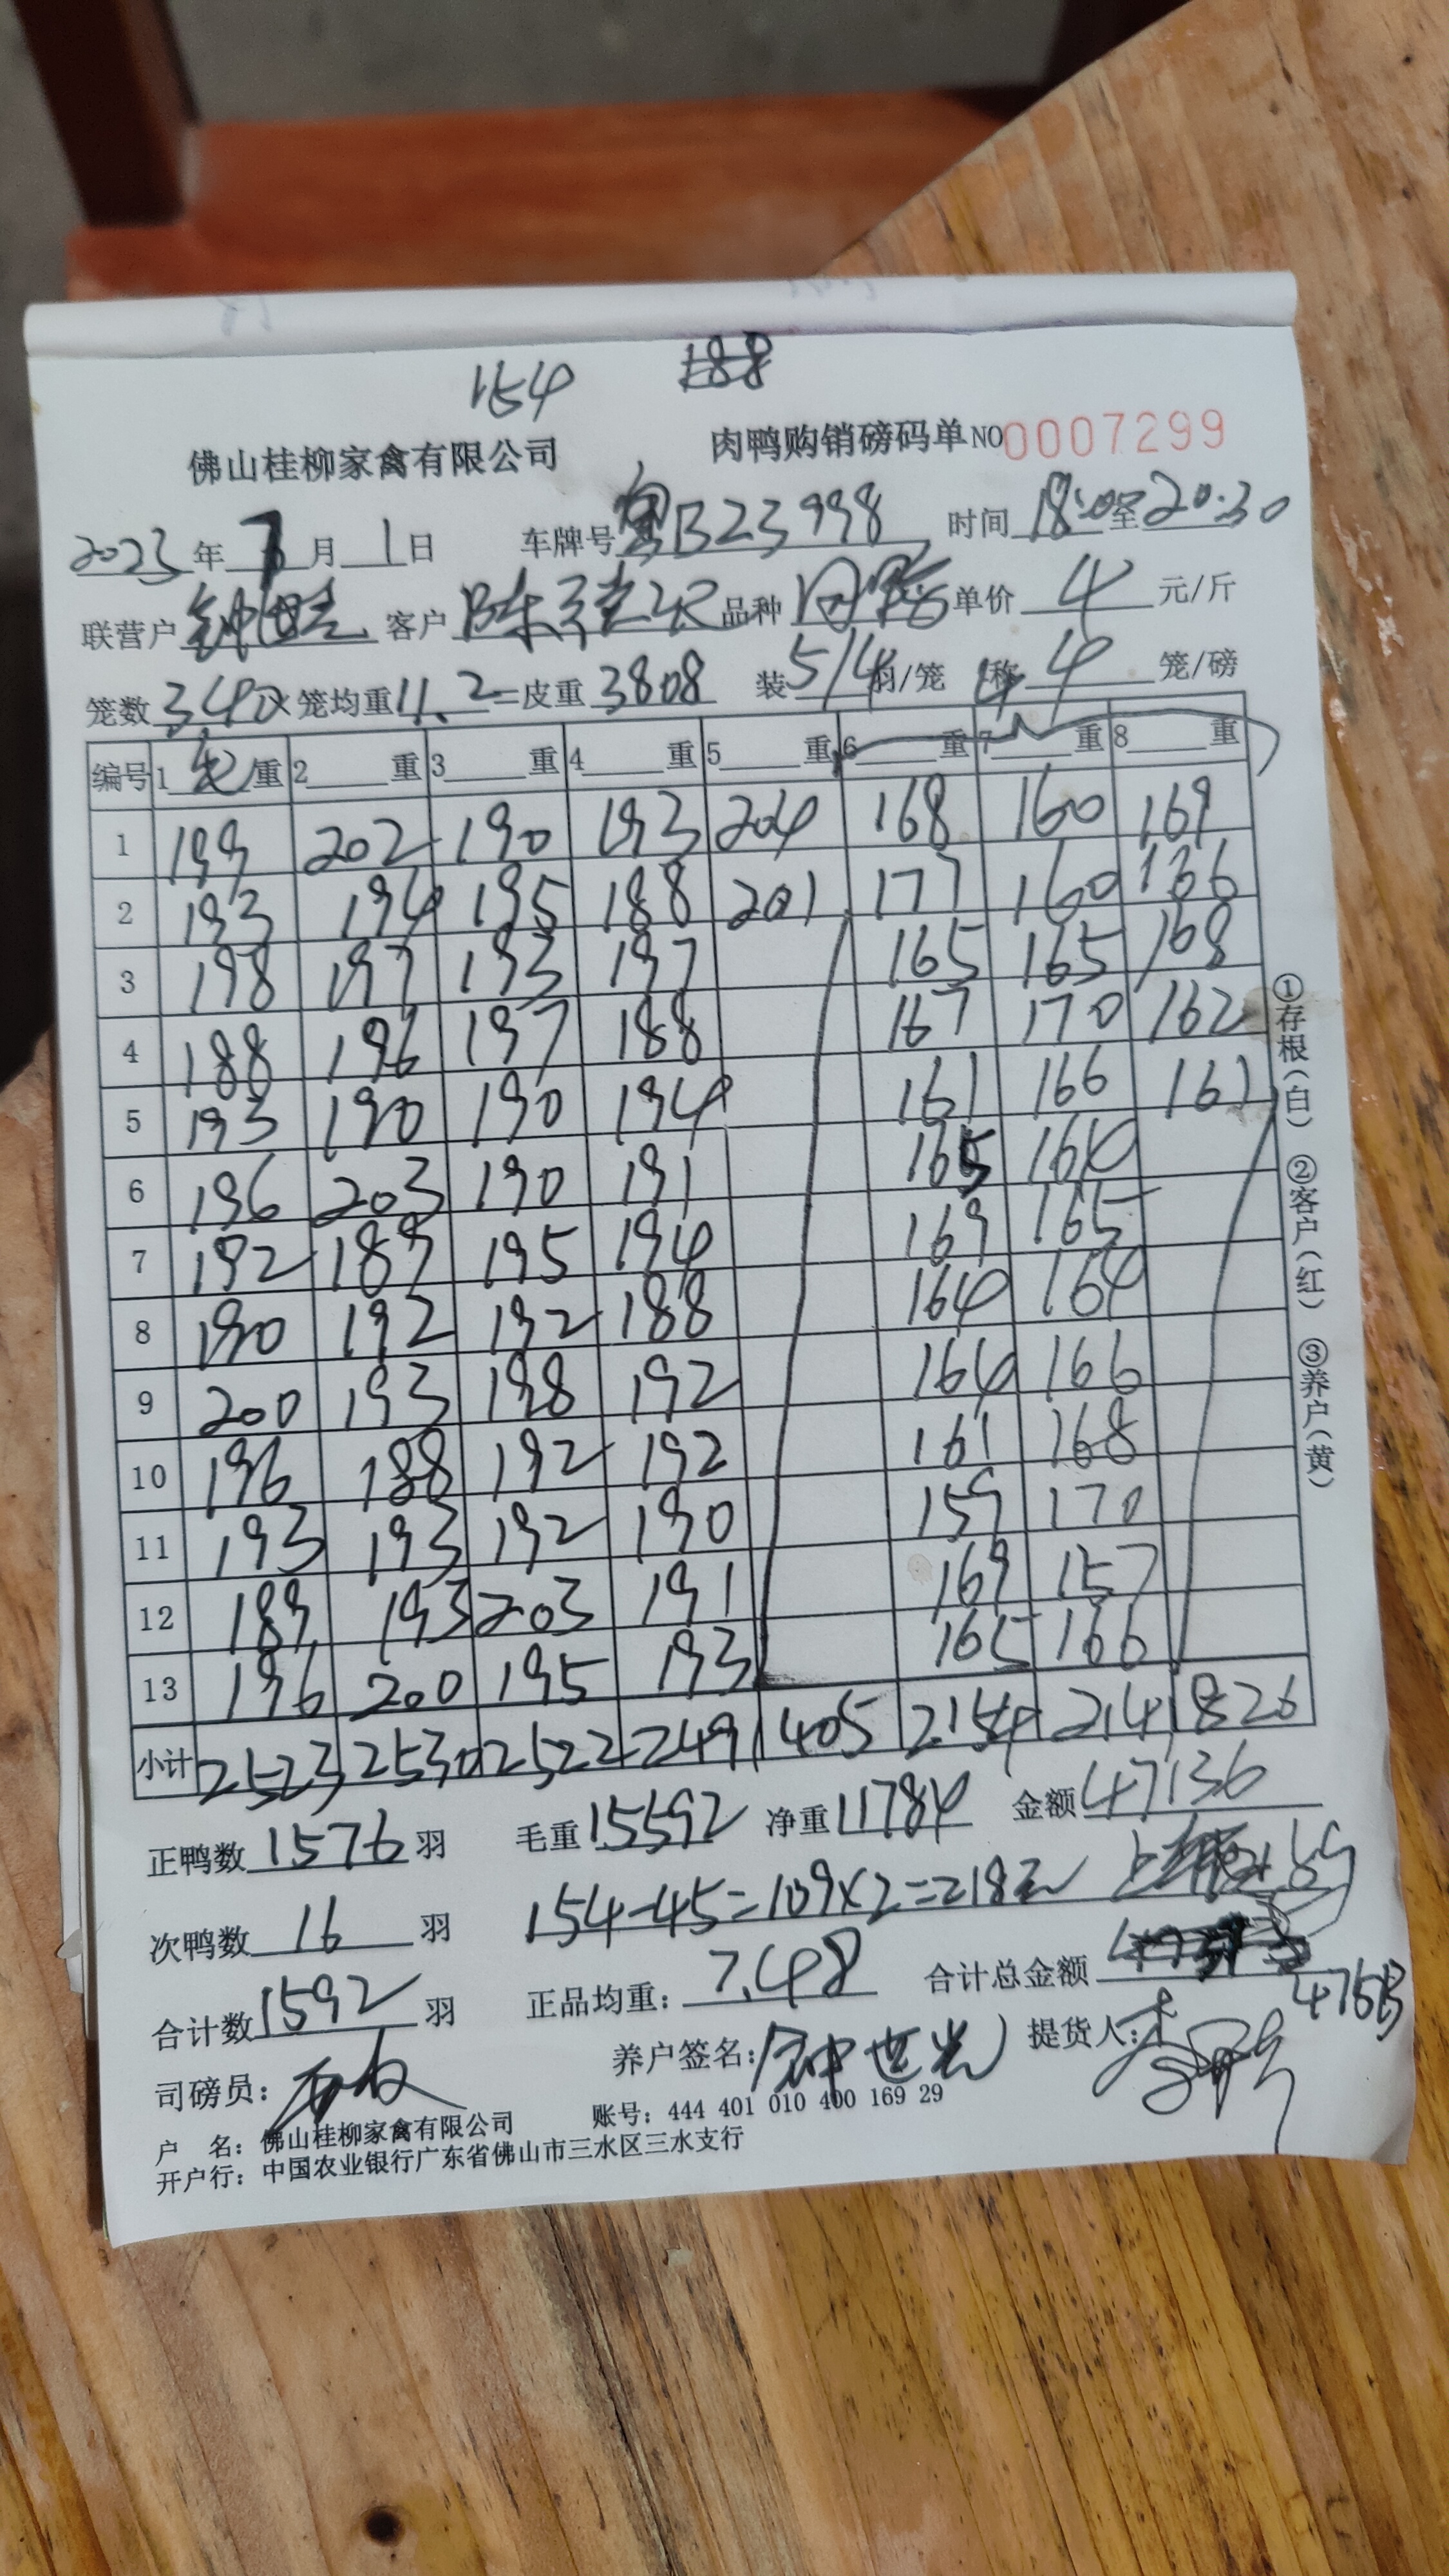 154 188
佛山桂柳家禽有限公司 肉鸭购销磅码单NO0007299
2023年7月1日 车牌号粤B23998 时间18:00至20:30
联营户 客户陈 品种 单价4元/斤
笼数340×笼均重11.2=皮重3808 装5/4羽/笼 称4笼/磅
编号 1毛重 2重 3重 4重 5重 6重 7重 8重
1 199 202 190 193 204 168 160 169
2 193 194 195 188 201 177 160 166
3 198 197 193 197 165 165 168
4 188 196 197 188 167 170 162
5 193 190 190 194 161 166 161
6 196 203 190 191 165 164
7 192 189 195 194 169 165
8 190 192 192 188 164 164
9 200 193 198 192 164 166
10 196 188 192 192 161 168
11 193 193 192 190 159 170
12 189 193 203 191 169 157
13 196 200 195 193 165 166
小计 2523 2530 2522 2491 405 2154 2141 826
正鸭数1576羽 毛重15592 净重11784 金额47136
次鸭数16羽 154-45=109×2=218元
合计数1592羽 正品均重：7.48 合计总金额
司磅员： 养户签名：钟世光 提货人：李
户 名：佛山桂柳家禽有限公司 账号：444 401 010 400 169 29
开户行：中国农业银行广东省佛山市三水区三水支行
①存根（白） ②客户（红） ③养户（黄）